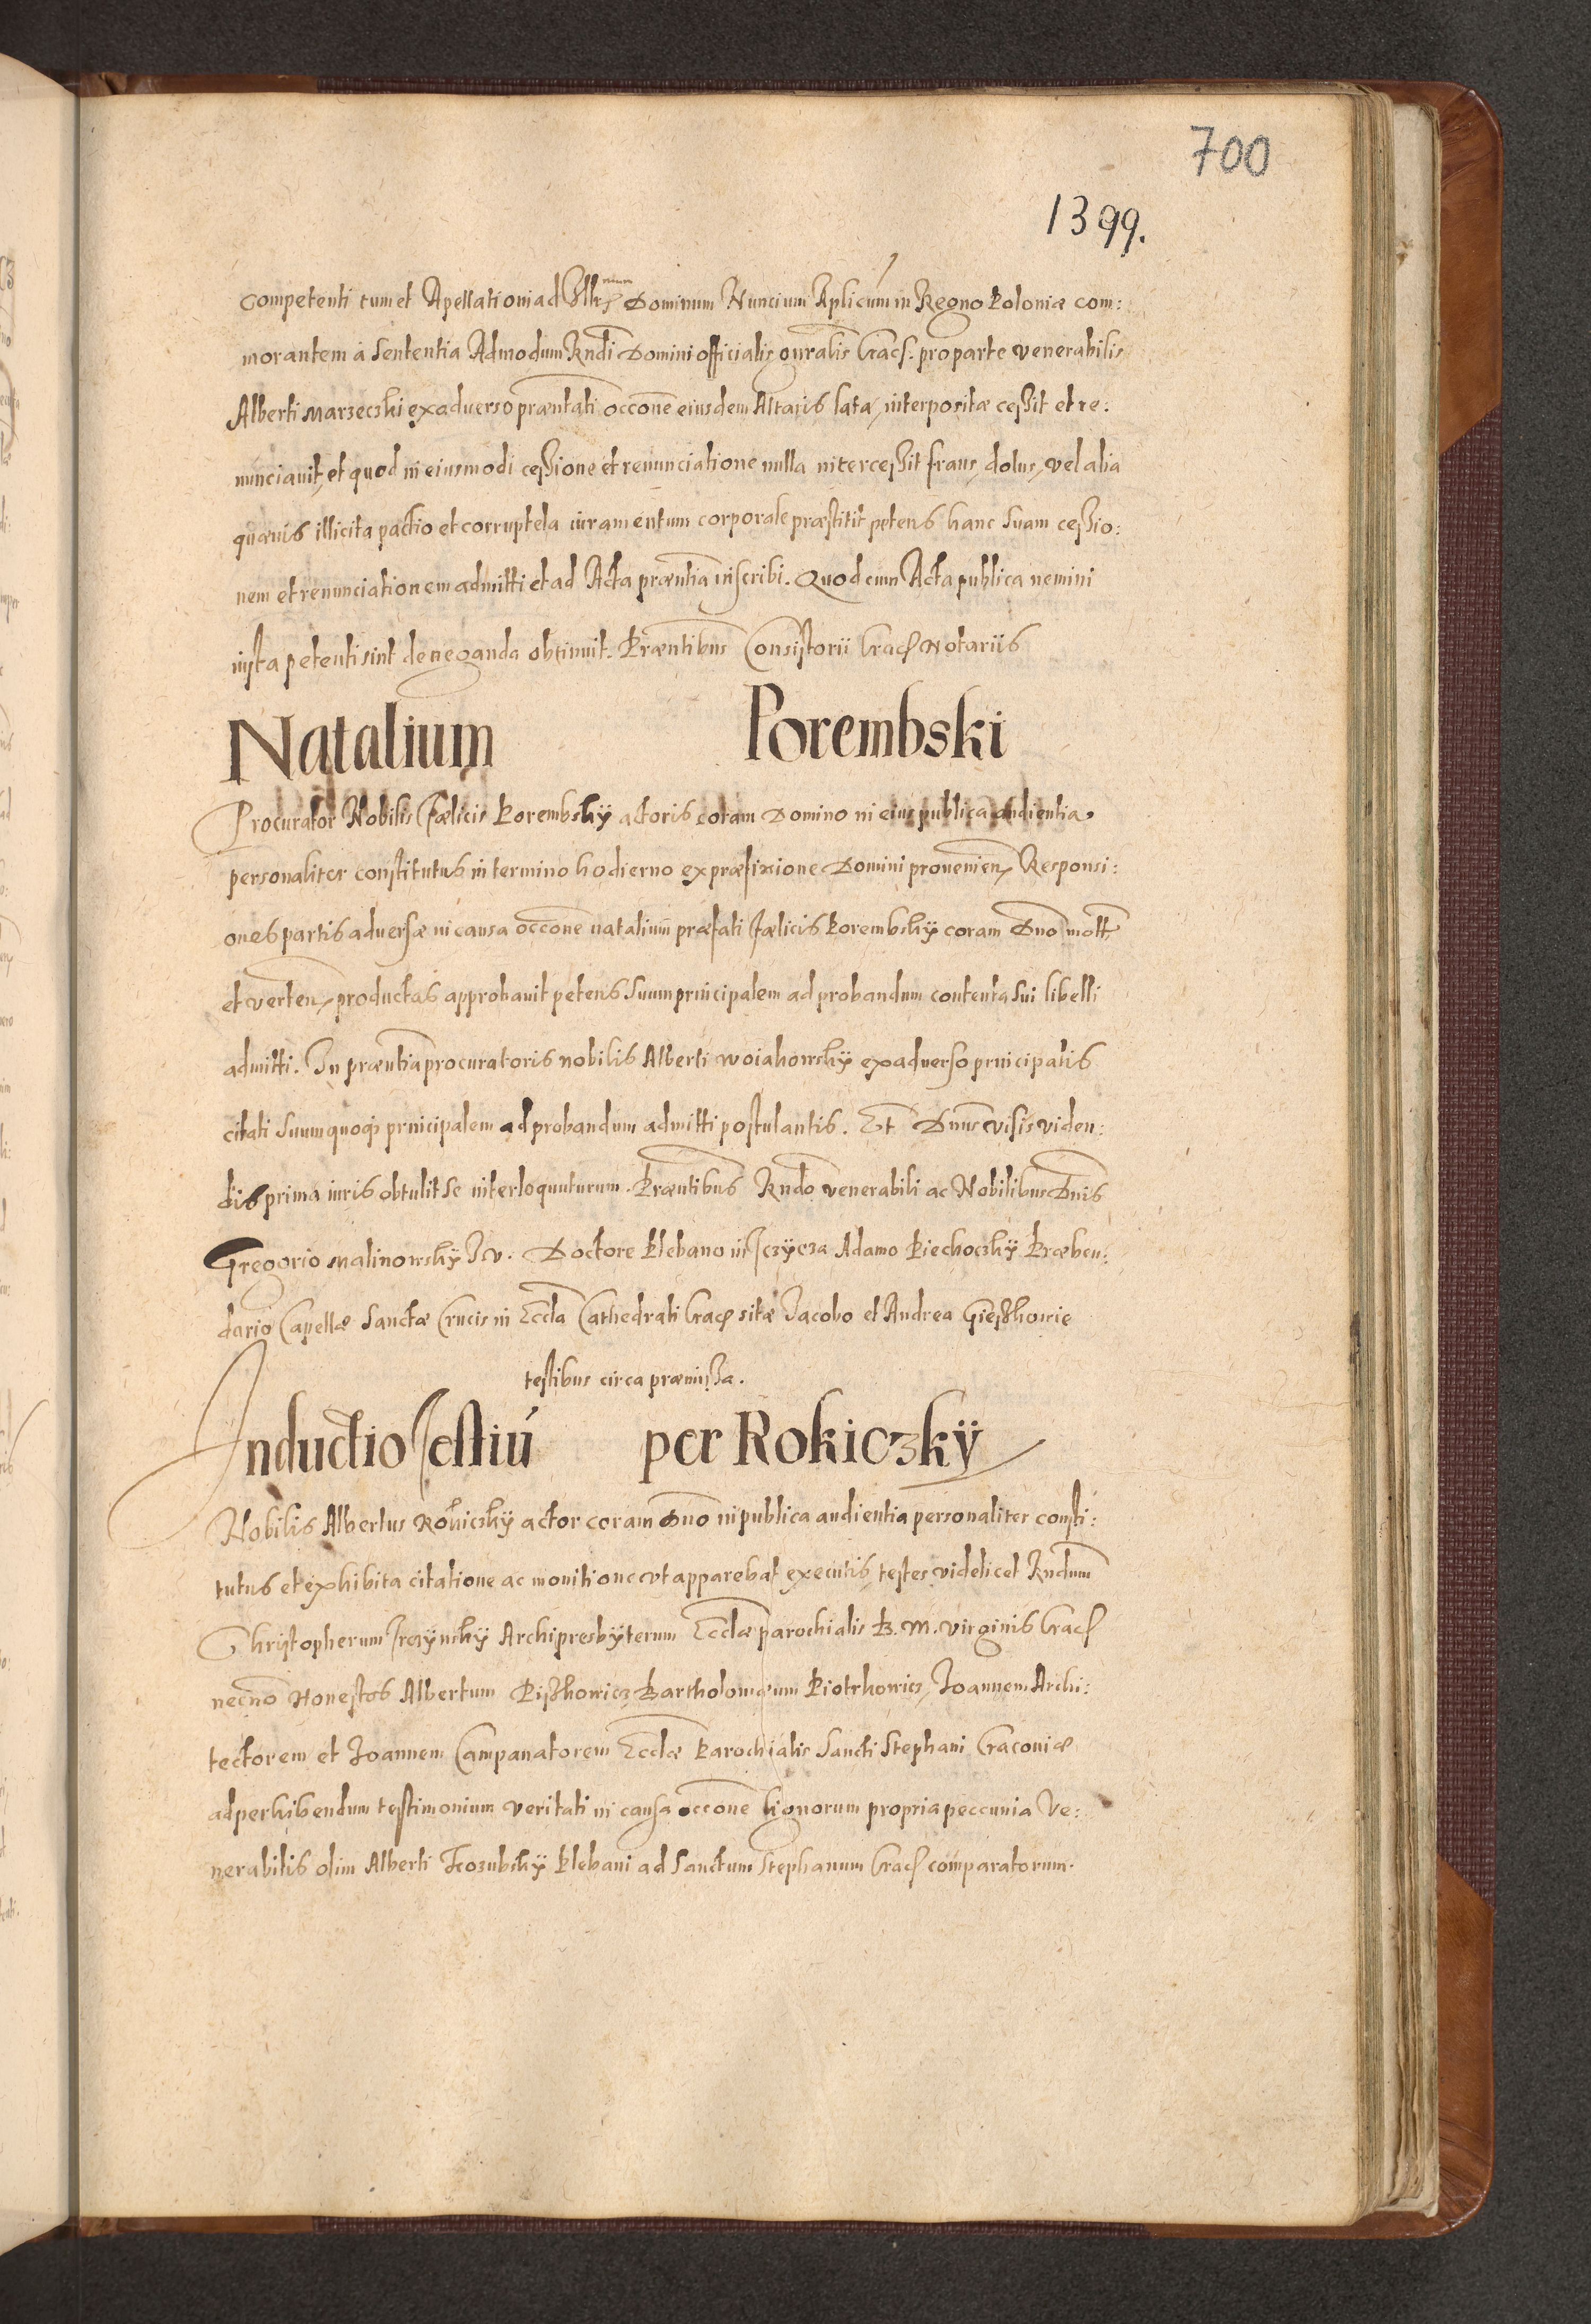 700
1399.
competenti tum et Apellationi ad Illr̃ Dominum Nuncium Aplicum in Regno Poloniæ com:
morantem à Sententia Admodum Rndi Domini officialis gnralis Crac. pro parte venerabilis
Alberti Marzeczki ex adverso præntati occone eiusdem Altaris lata, interpositæ ceßit et re:
nunciauit, et quod in eiusmodi ceßione et renunciatione nulla interceßit fraus, dolus, vel alia
quævis illicita pactio et corruptela iuramentum corporale præstitit petens hanc suam ceßio:
nem et renunciationem admitti et ad Acta præntia inscribi. Quod cum Acta publica nemini
iusta petenti sint deneganda obtinuit. Præntibus Consistorii Crac Notariis
Natalium Porembski
Procurator Nobilis Fælicis Porembskÿ actoris coram Domino in eius publica audientia
personaliter constitutus in termino hodierno ex præfixione Domini provenien, Responsi:
ones partis adversæ in causa occone natalium præfati Fælicis Porembskÿ coram Dno mott
et verten, productas approbavit petens suum principalem ad probandum contenta sui libelli
admitti. In præntia procuratoris nobilis Alberti Woiakowskÿ ex adverso principalis
citati suum quoq principalem ad probandum admitti postulantis. Et Dnus visis viden:
dis prima iuris obtulit se interloquuturum. Præntibus Rndo venerabili ac Nobilibus Dnis
Gregorio Malinowskÿ I.V. Doctore Plebano in Adamo Piechoczkÿ Præben:
dario Capellæ Sanctæ Crucis in Eccla Cathedrali Crac sitæ Jacobo et Andrea
testibus circa præmißa.
Inductio Testiũ per Rokiczkÿ
Nobilis Albertus Rokiczkÿ actor coram Dno in publica audientia personaliter consti:
tutus et exhibita citatione ac monitione ut apparebat executis, testes videlicet Rndum
Christopherum Trczynskÿ Archipresbÿterum Ecclæ parochialis B. M. Virginis Crac
necno Honestos Albertum Bartholomæum Piotrkowicz, Joannem Archi:
tectorem et Joannem Campanatorem Ecclæ Parochialis Sancti Stephani Cracoviæ
ad perhibendum testimonium veritati in causa occone lignorum propria peccunia Ve:
nerabilis olim Alberti Plebani ad Sanctum Stephanum Crac comparatorum.